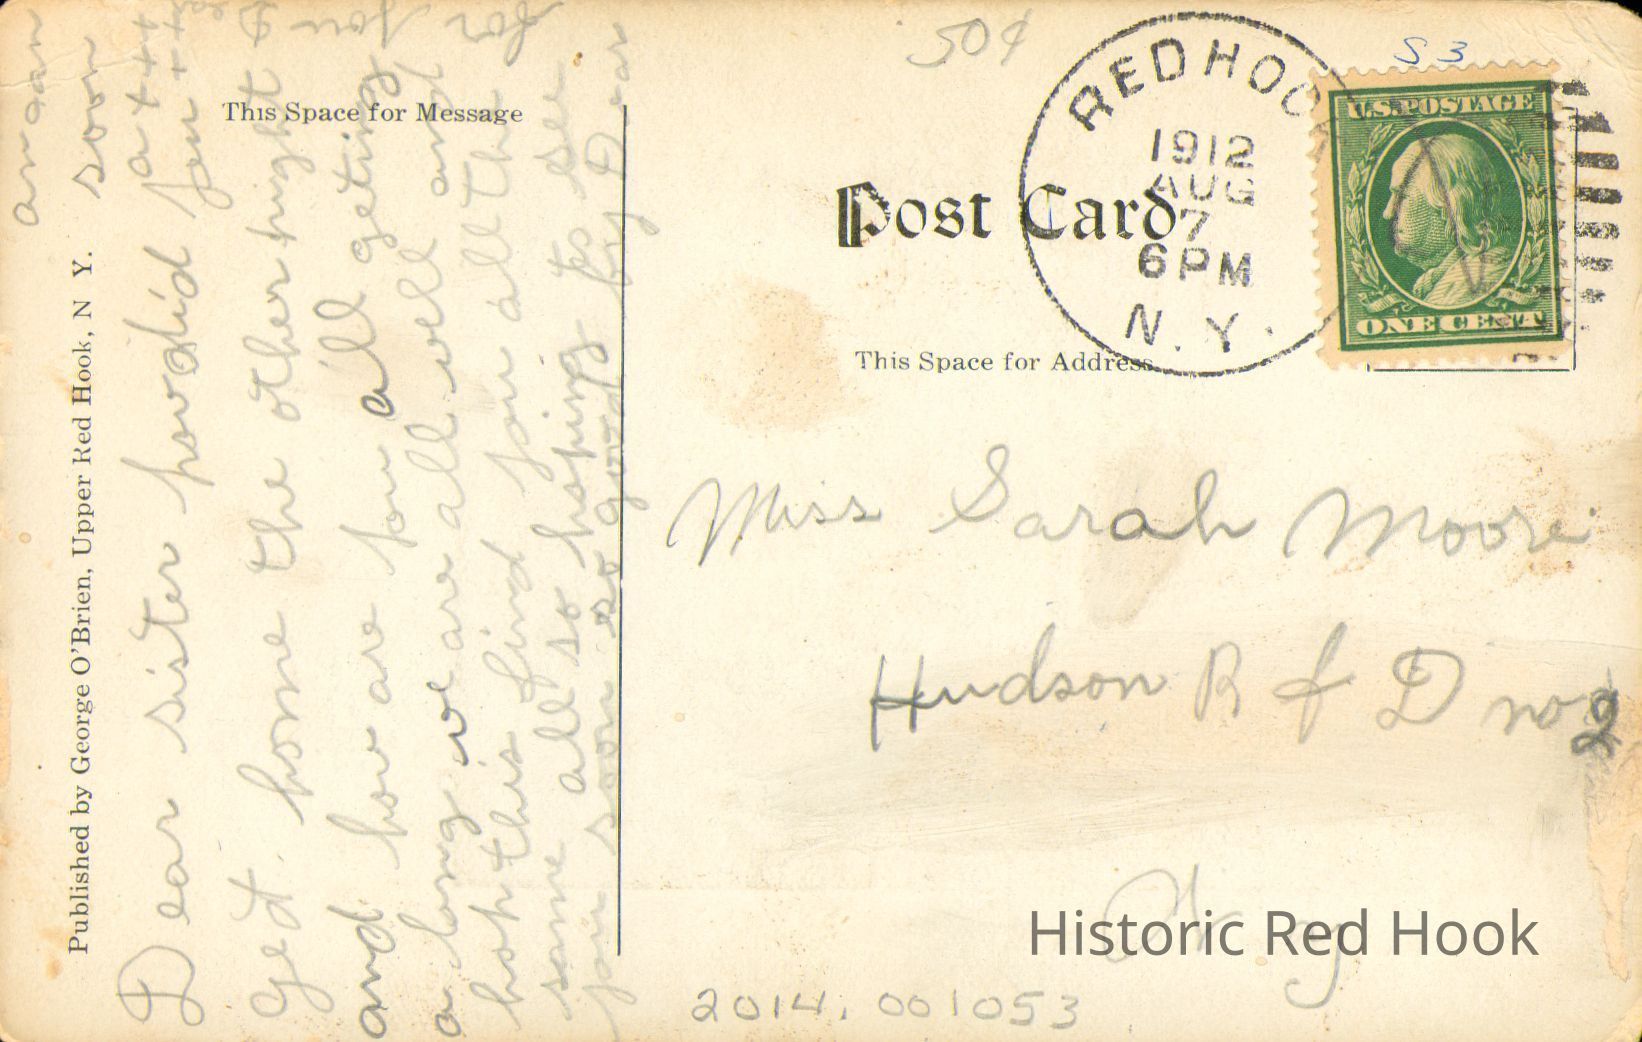 50¢
S 3
RED HOOK
1912
AUG
7
6 PM
N.Y.
U.S. POSTAGE
ONE CENT
This Space for Message
Post Card
This Space for Address
Published by George O'Brien, Upper Red Hook, N Y.
Dear sister how did you
get home the other night
and how are you all geting
a long we are all well and
hop this find you all the
same all so hoping to see
you soon so good by Dear
soon
for you
Miss Sarah Moore
Hudson R f D no 2
N y
Historic Red Hook
2014.001053